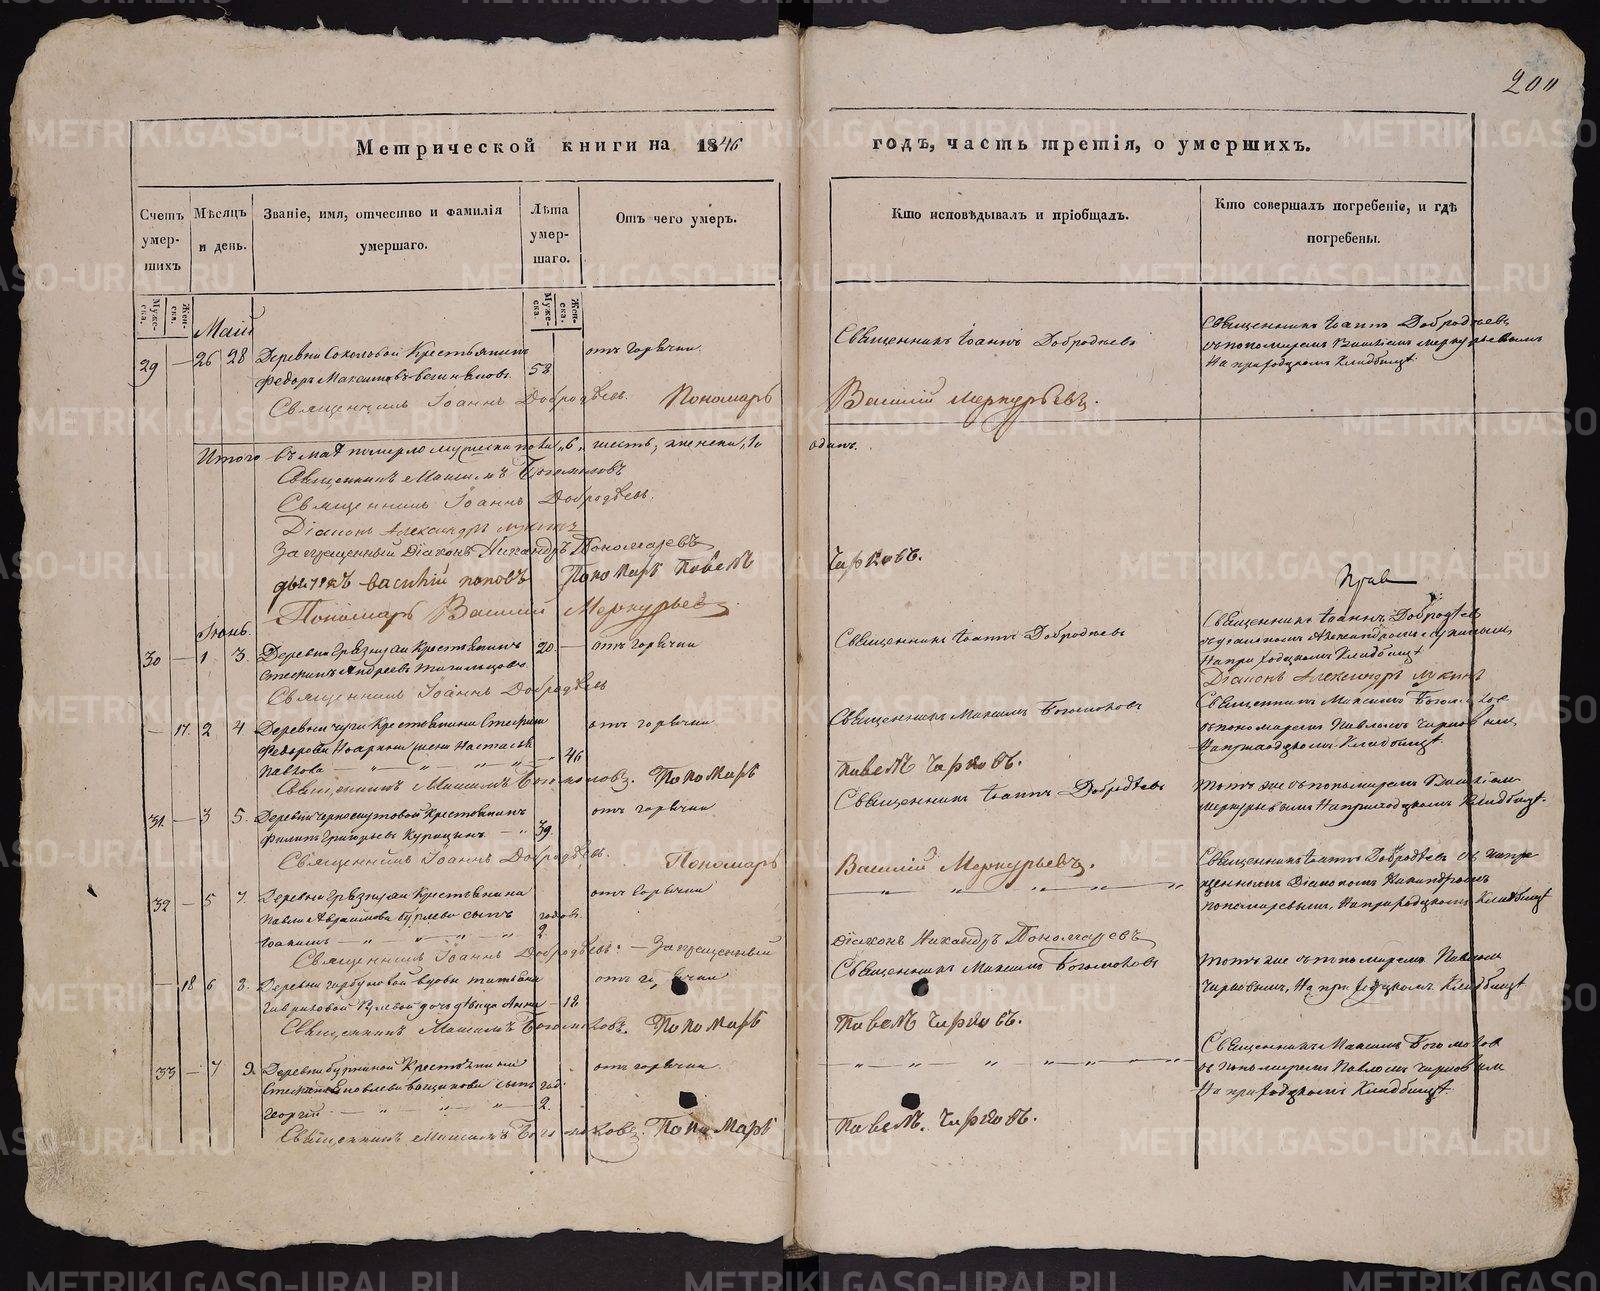 200
Метрической книги на 1846
годъ, часть третія, о умершихъ.
Счетъ умер-шихъ
Мѣсяцъ и день.
Званіе, имя, отчество и фамилія умершаго.
Лѣта умер-шаго.
Отъ чего умеръ.
Кто исповѣдывалъ и пріобщалъ.
Кто совершалъ погребеніе, и гдѣ погребены.
Муже-ска.
Жен-ска.
Муже-ска.
Жен-ска.
Маій
29 — 26 28 Деревни Соколовой Крестьянинъ
Федоръ Максимовъ 58
отъ горячки
Священникъ Іоаннъ Добродѣевъ
Священникъ Іоаннъ Добродѣевъ
съ пономаремъ Василіемъ Меркурьевымъ
На приходскомъ Кладбищѣ.
Священникъ Іоаннъ Добродѣевъ. Пономарь
Василій Меркурьевъ.
Итого въ маѣ померло мужеска пола „6„ шесть, женска „1„
одинъ.
Священникъ Максимъ Богомоловъ
Священникъ Іоаннъ Добродѣевъ.
Діаконъ Александръ Лукинъ
Запрещенный Діаконъ Никандръ Пономаревъ
дьячекъ Василій поповъ Пономарь Павелъ
Чирковъ.
Пономарь Василий Меркурьевъ.
Іюнь.
30 — 1 3. Деревни Крестьянинъ 20 — отъ горячки
Андреевъ
Священникъ Іоаннъ Добродѣевъ
Священникъ Іоаннъ Добродѣевъ
съ діакономъ Александромъ Лукинымъ
На приходскомъ Кладбищѣ
Діаконъ Александръ Лукинъ
Священникъ Іоаннъ Добродѣевъ
— 17. 2 4 Деревни Крестьянина Степана
отъ горячки
Федорова жена Настасья
Павлова — 46
Священникъ Максимъ Богомоловъ
Священникъ Максимъ Богомоловъ
съ пономаремъ Павломъ Чирковымъ,
На приходскомъ Кладбищѣ.
Священникъ Максимъ Богомоловъ. Пономарь
Павелъ Чирковъ.
31. — 3 5. Деревни Крестьянинъ
отъ горячки
Филипъ Григорьевъ Курицинъ — 39.
Священникъ Іоаннъ Добродѣевъ
Тотъ же съ пономаремъ Василіем
Меркурьевымъ На приходскомъ Кладбищѣ.
Священникъ Іоаннъ Добродѣевъ. Пономарь
Василій Меркурьевъ.
32 — 5 7. Деревни Крестьянина
отъ горячки
Павла сынъ годовъ.
— 2.
Священникъ Іоаннъ Добродѣевъ съ запре-
щеннымъ Діакономъ Никандромъ
Пономаревымъ, На приходскомъ Кладбищѣ
Священникъ Іоаннъ Добродѣевъ. — Запрещенный
Діаконъ Никандръ Пономаревъ
— 18 6 8. Деревни вдовы Татьяны
отъ горячки
дочь дѣвица Анна — 18
Священникъ Максимъ Богомоловъ
Тотъ же съ пономаремъ Павломъ
Чирковымъ, На приходскомъ Кладбищѣ
Священникъ Максимъ Богомоловъ. Пономарь
Павелъ Чирковъ.
33 — 7 9. Деревни Крестьянина
отъ горячки.
сынъ год.
Георгій — 2.
Священникъ Максимъ Богомолов
съ пономаремъ Павломъ Чирковым
На приходскомъ Кладбищѣ.
Священникъ Максимъ Богомоловъ. Пономарь
Павелъ. Чирковъ.
METRIKI.GASO-URAL.RU